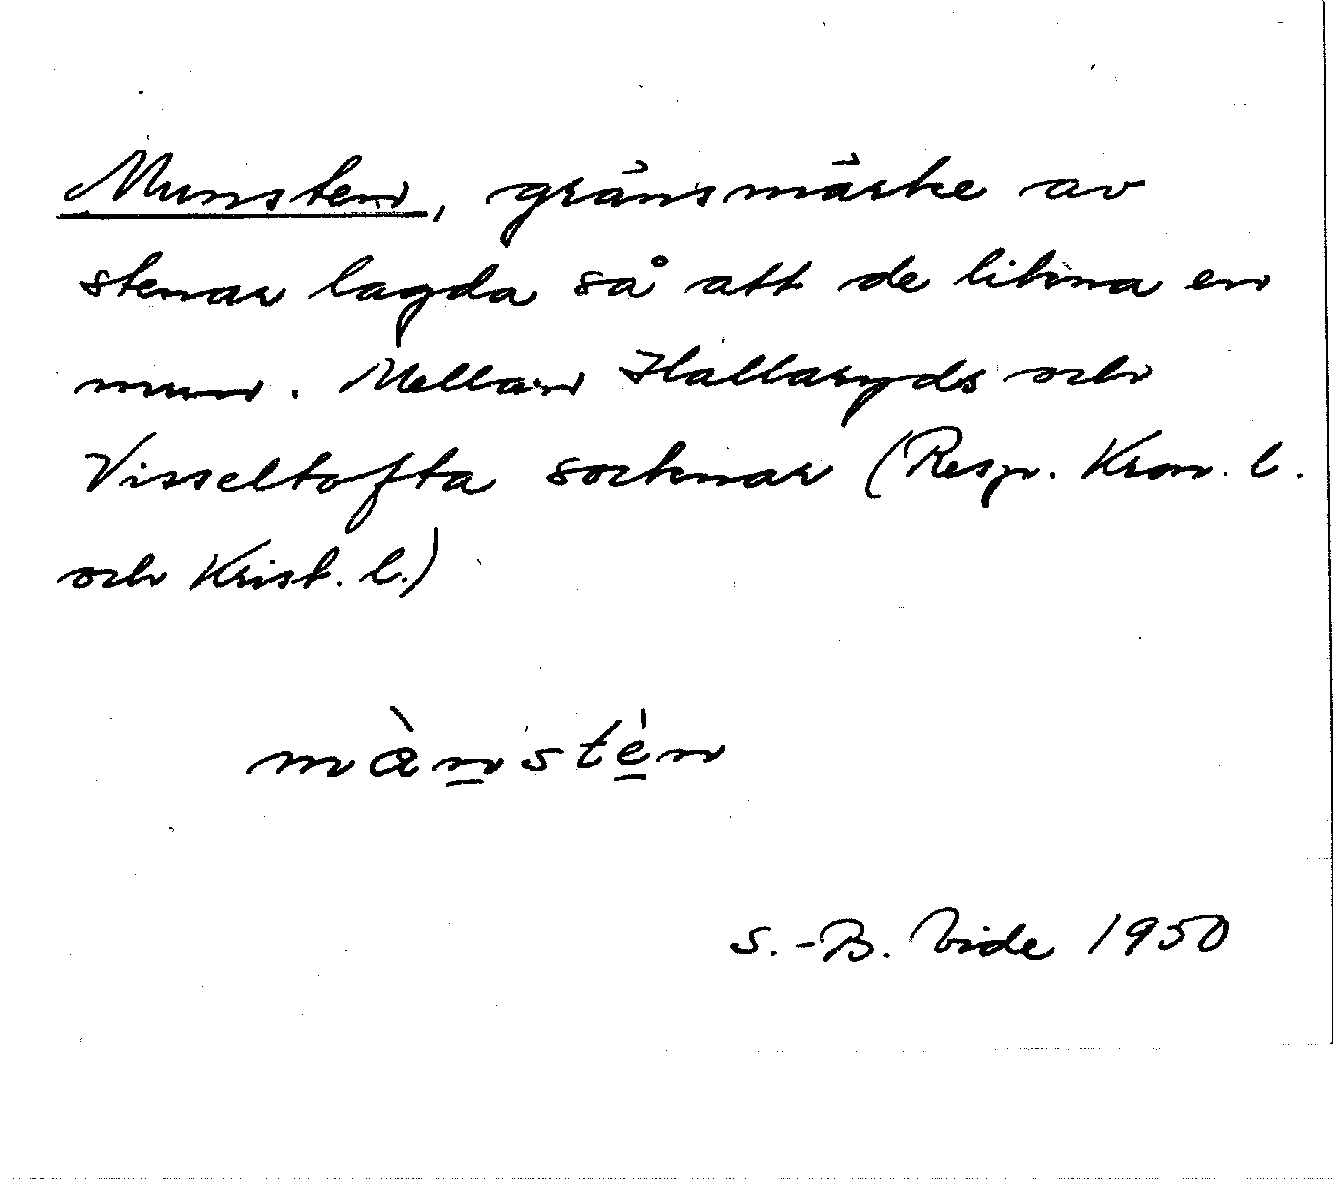 Munsten, gränsmärke av
stenar lagda så att de likna en
mun. Mellan Hallaryds och
Visseltofta socknar (Resp. Kron. l.
och Krist. l.)
mànstèn
S.-B. Vide 1950